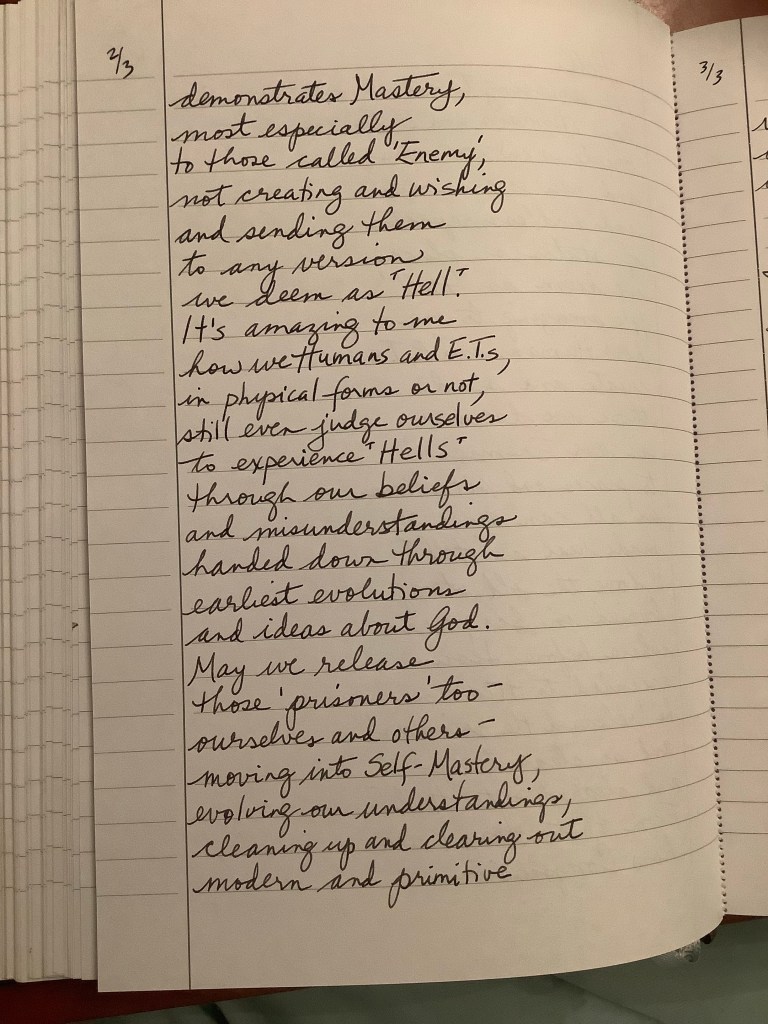 2/3
demonstrates Mastery,
most especially
to those called 'Enemy',
not creating and wishing
and sending them
to any version
we deem as "Hell".
It's amazing to me
how we Humans and E.T.s,
in physical forms or not,
still even judge ourselves
to experience "Hells"
through our beliefs
and misunderstandings
handed down through
earliest evolutions
and ideas about God.
May we release
those 'prisoners' too –
ourselves and others –
moving into Self-Mastery,
evolving our understandings,
cleaning up and clearing out
modern and primitive
3/3